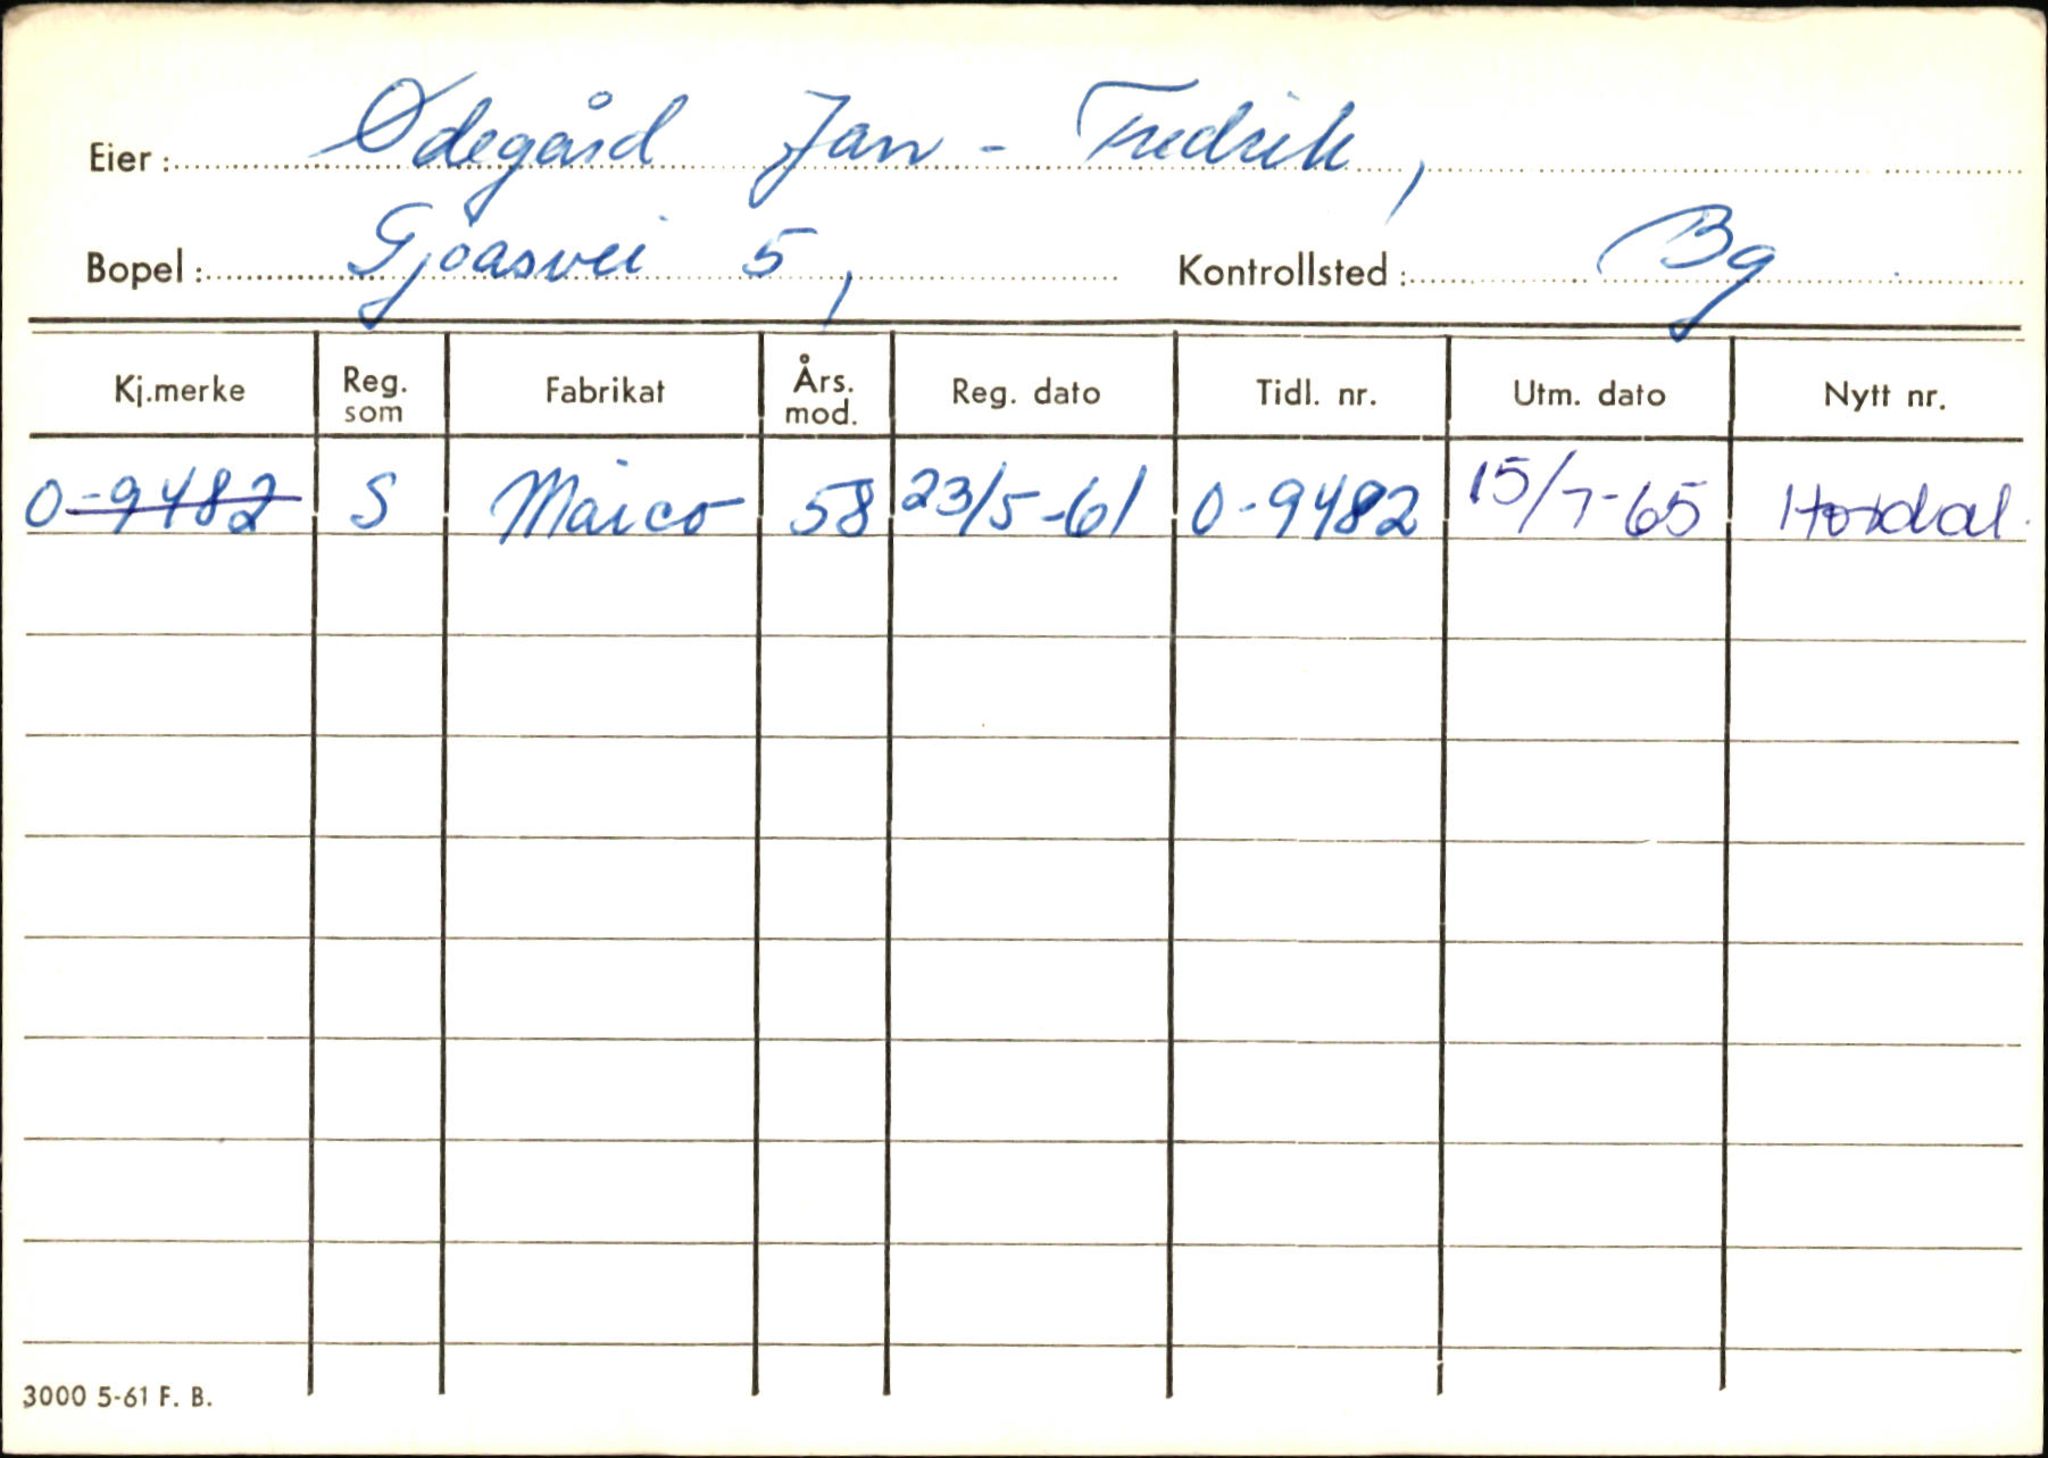 Eier: Ødegård Jan - Fredrik,
Bopel: Gjøasvei 5, Kontrollsted: Bg
Kj.merke Reg. som Fabrikat Års. mod. Reg. dato Tidl. nr. Utm. dato Nytt nr.
O-9482 S Maico 58 23/5-61 O-9482 15/7-65 Hordal.
3000 5-61 F. B.